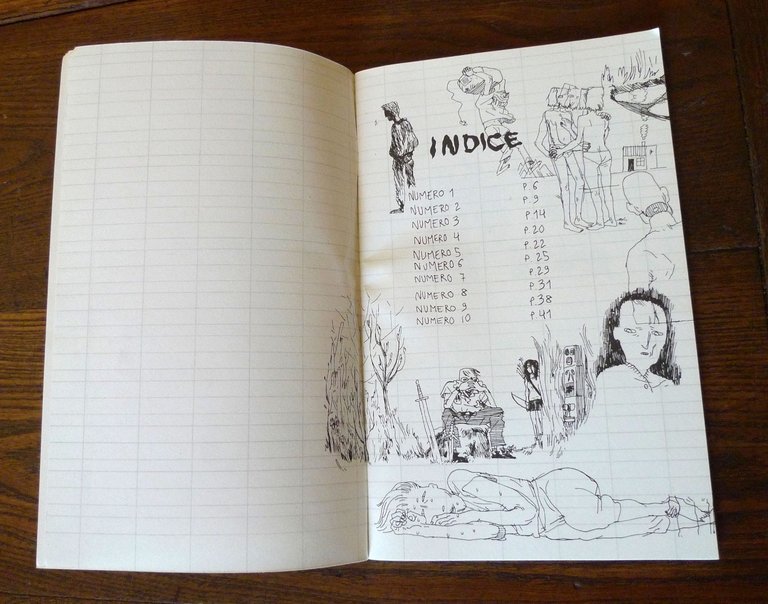 INDICE
NUMERO 1 P. 6
NUMERO 2 P. 9
NUMERO 3 P. 14
NUMERO 4 P. 20
NUMERO 5 P. 22
NUMERO 6 P. 25
NUMERO 7 P. 29
NUMERO 8 P. 31
NUMERO 9 P. 38
NUMERO 10 P. 41